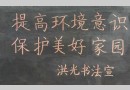 提高环境意识
保护美好家园
洪光书法室